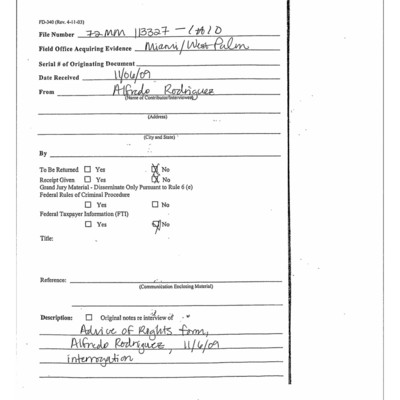 FD-340 (Rev. 4-11-03)
File Number 72 MM 113327 - 1A10
Field Office Acquiring Evidence Miami/West Palm
Serial # of Originating Document
Date Received 11/06/09
From Alfredo Rodriguez
(Name of Contributor/Interviewee)
(Address)
(City and State)
By
To Be Returned ☐ Yes ☒ No
Receipt Given ☐ Yes ☒ No
Grand Jury Material - Disseminate Only Pursuant to Rule 6 (e)
Federal Rules of Criminal Procedure
☐ Yes ☐ No
Federal Taxpayer Information (FTI)
☐ Yes ☒ No
Title:
Reference:
(Communication Enclosing Material)
Description: ☐ Original notes re interview of
Advice of Rights form,
Alfredo Rodriguez, 11/6/09
interrogation